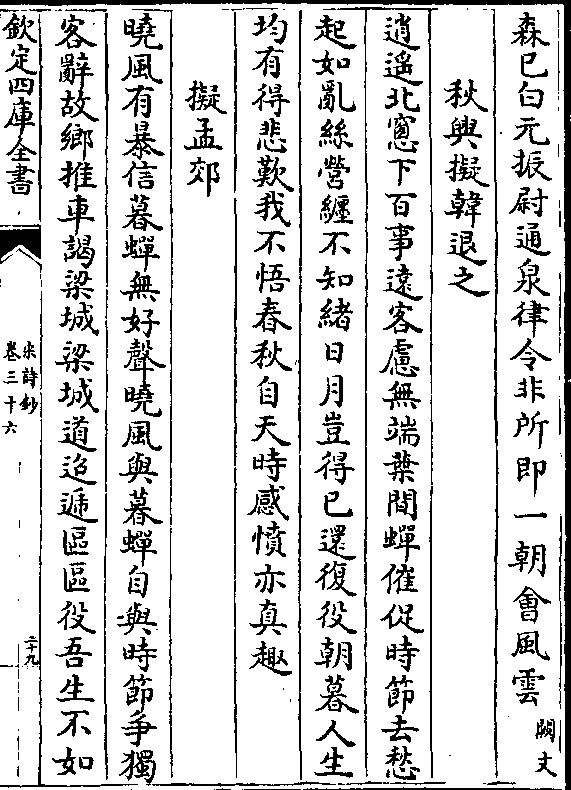 森已白元振尉通泉律令非所即一朝會風雲闕文
秋興擬韓退之
逍遙北窻下百事遠客慮無端葉間蟬催促時節去愁
起如亂絲縈纏不知緒日月豈得已還復役朝暮人生
均有得悲歎我不悟春秋自天時感憤亦真趣
擬孟郊
曉風有暴信暮蟬無好聲曉風與暮蟬自與時節爭獨
客辭故鄉推車謁梁城梁城道迢遞區區役吾生不如
欽定四庫全書
宋詩鈔
卷三十六
二十九